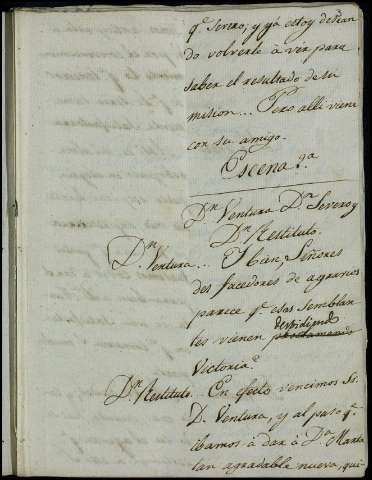 qe. Severo; y yá estoy desean
do volverle à ver para
saber el resultado de su
mision... Pero alli viene
con su amigo.
Escena 7a.
Dn. Ventura Dn. Severo y
Dn. Restituto.
Dn. Ventura... Señores
des facedores de agravios
parece qe. esas semblan
tes vienen
Victoria.
Dn. Restituto... En efecto vencimos Sor.
D. Ventura, y al paso qe.
ibamos à dar à Da. Marta
tan agradable nueva, qui-